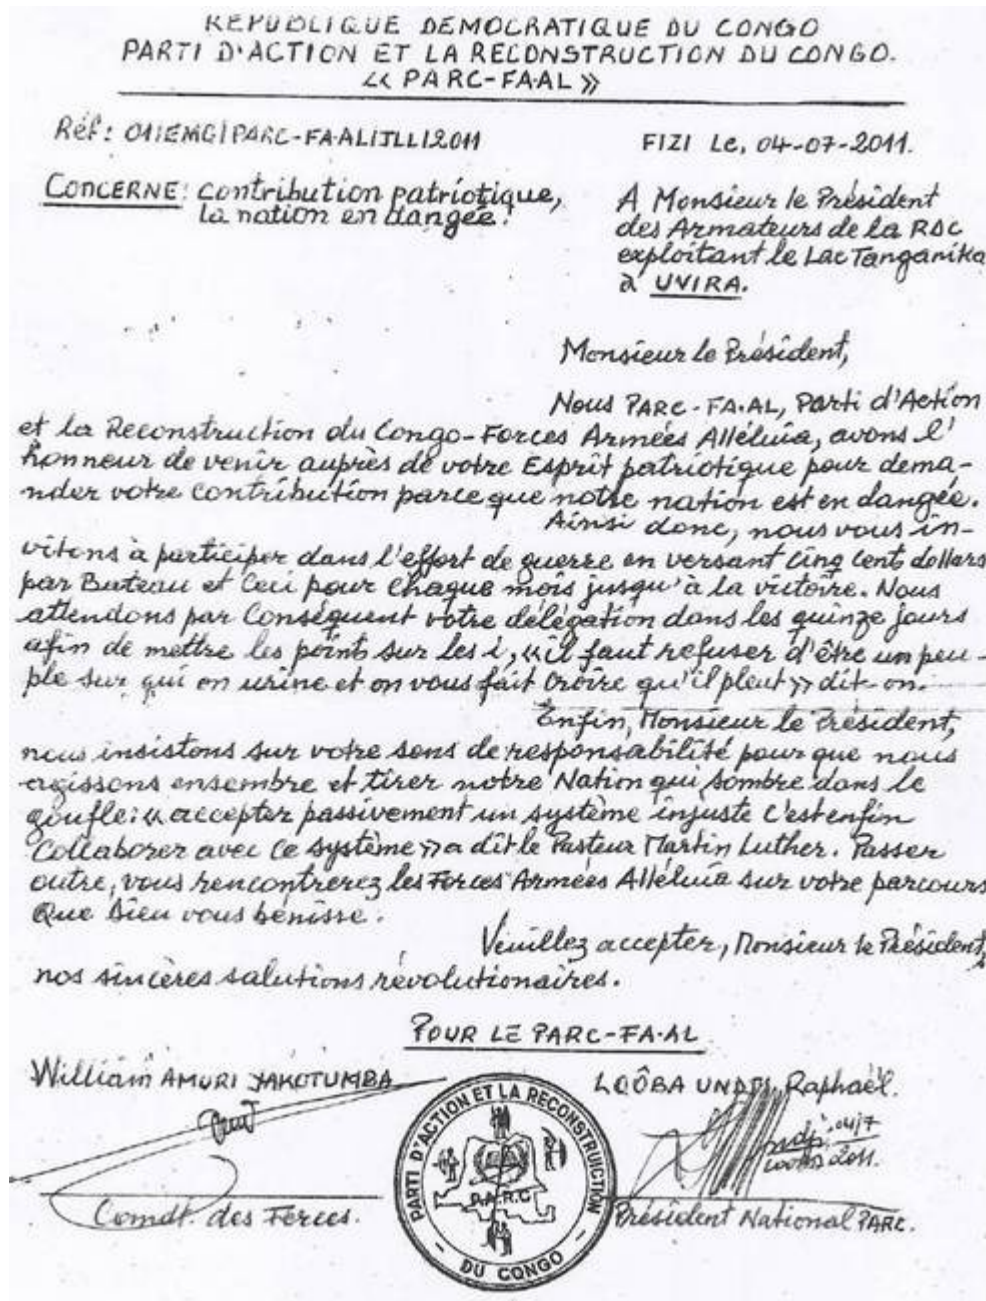 REPUBLIQUE DEMOCRATIQUE DU CONGO
PARTI D'ACTION ET LA RECONSTRUCTION DU CONGO.
« PARC-FA.AL »
Réf: 011EMG/PARC-FA.AL/JLL/2011
FIZI Le, 04-07-2011.
CONCERNE: Contribution patriotique,
la nation en dangée.
A Monsieur le Président
des Armateurs de la RDC
exploitant le Lac Tanganika
à UVIRA.
Monsieur le Président,
Nous PARC-FA.AL, Parti d'Action
et la Reconstruction du Congo-Forces Armées Alléluia, avons l'
honneur de venir auprès de votre Esprit patriotique pour dema-
nder votre contribution parce que notre nation est en dangée.
Ainsi donc, nous vous in-
vitons à participer dans l'effort de guerre en versant Cinq Cents dollars
par Bateau et Ceci pour Chaque mois jusqu'à la victoire. Nous
attendons par Conséquent votre délégation dans les quinze jours
afin de mettre les point sur les i, «il faut refuser d'être un peu-
ple sur qui on urine et on vous fait Croire qu'il pleut» dit-on.
Enfin, Monsieur le Président,
nous insistons sur votre sens de responsabilité pour que nous
agissons ensembre et tirer notre Nation qui sombre dans le
goufle: «accepter passivement un système injuste C'est enfin
Collaborer avec Ce système» a dit le Pasteur Martin Luther. Passer
outre, vous rencontrerez les Forces Armées Alléluia sur votre parcours
Que Dieu vous bénisse.
Veuillez accepter, Monsieur le Président,
nos sincères salutions révolutionaires.
POUR LE PARC-FA.AL
William AMURI YAKOTUMBA
LOÔBA UNDJI, Raphaël.
04/7
2011.
Comdt. des Forces.
Président National PARC.
PARTI D'ACTION ET LA RECONSTRUICTION
P.A.R.C
DU CONGO